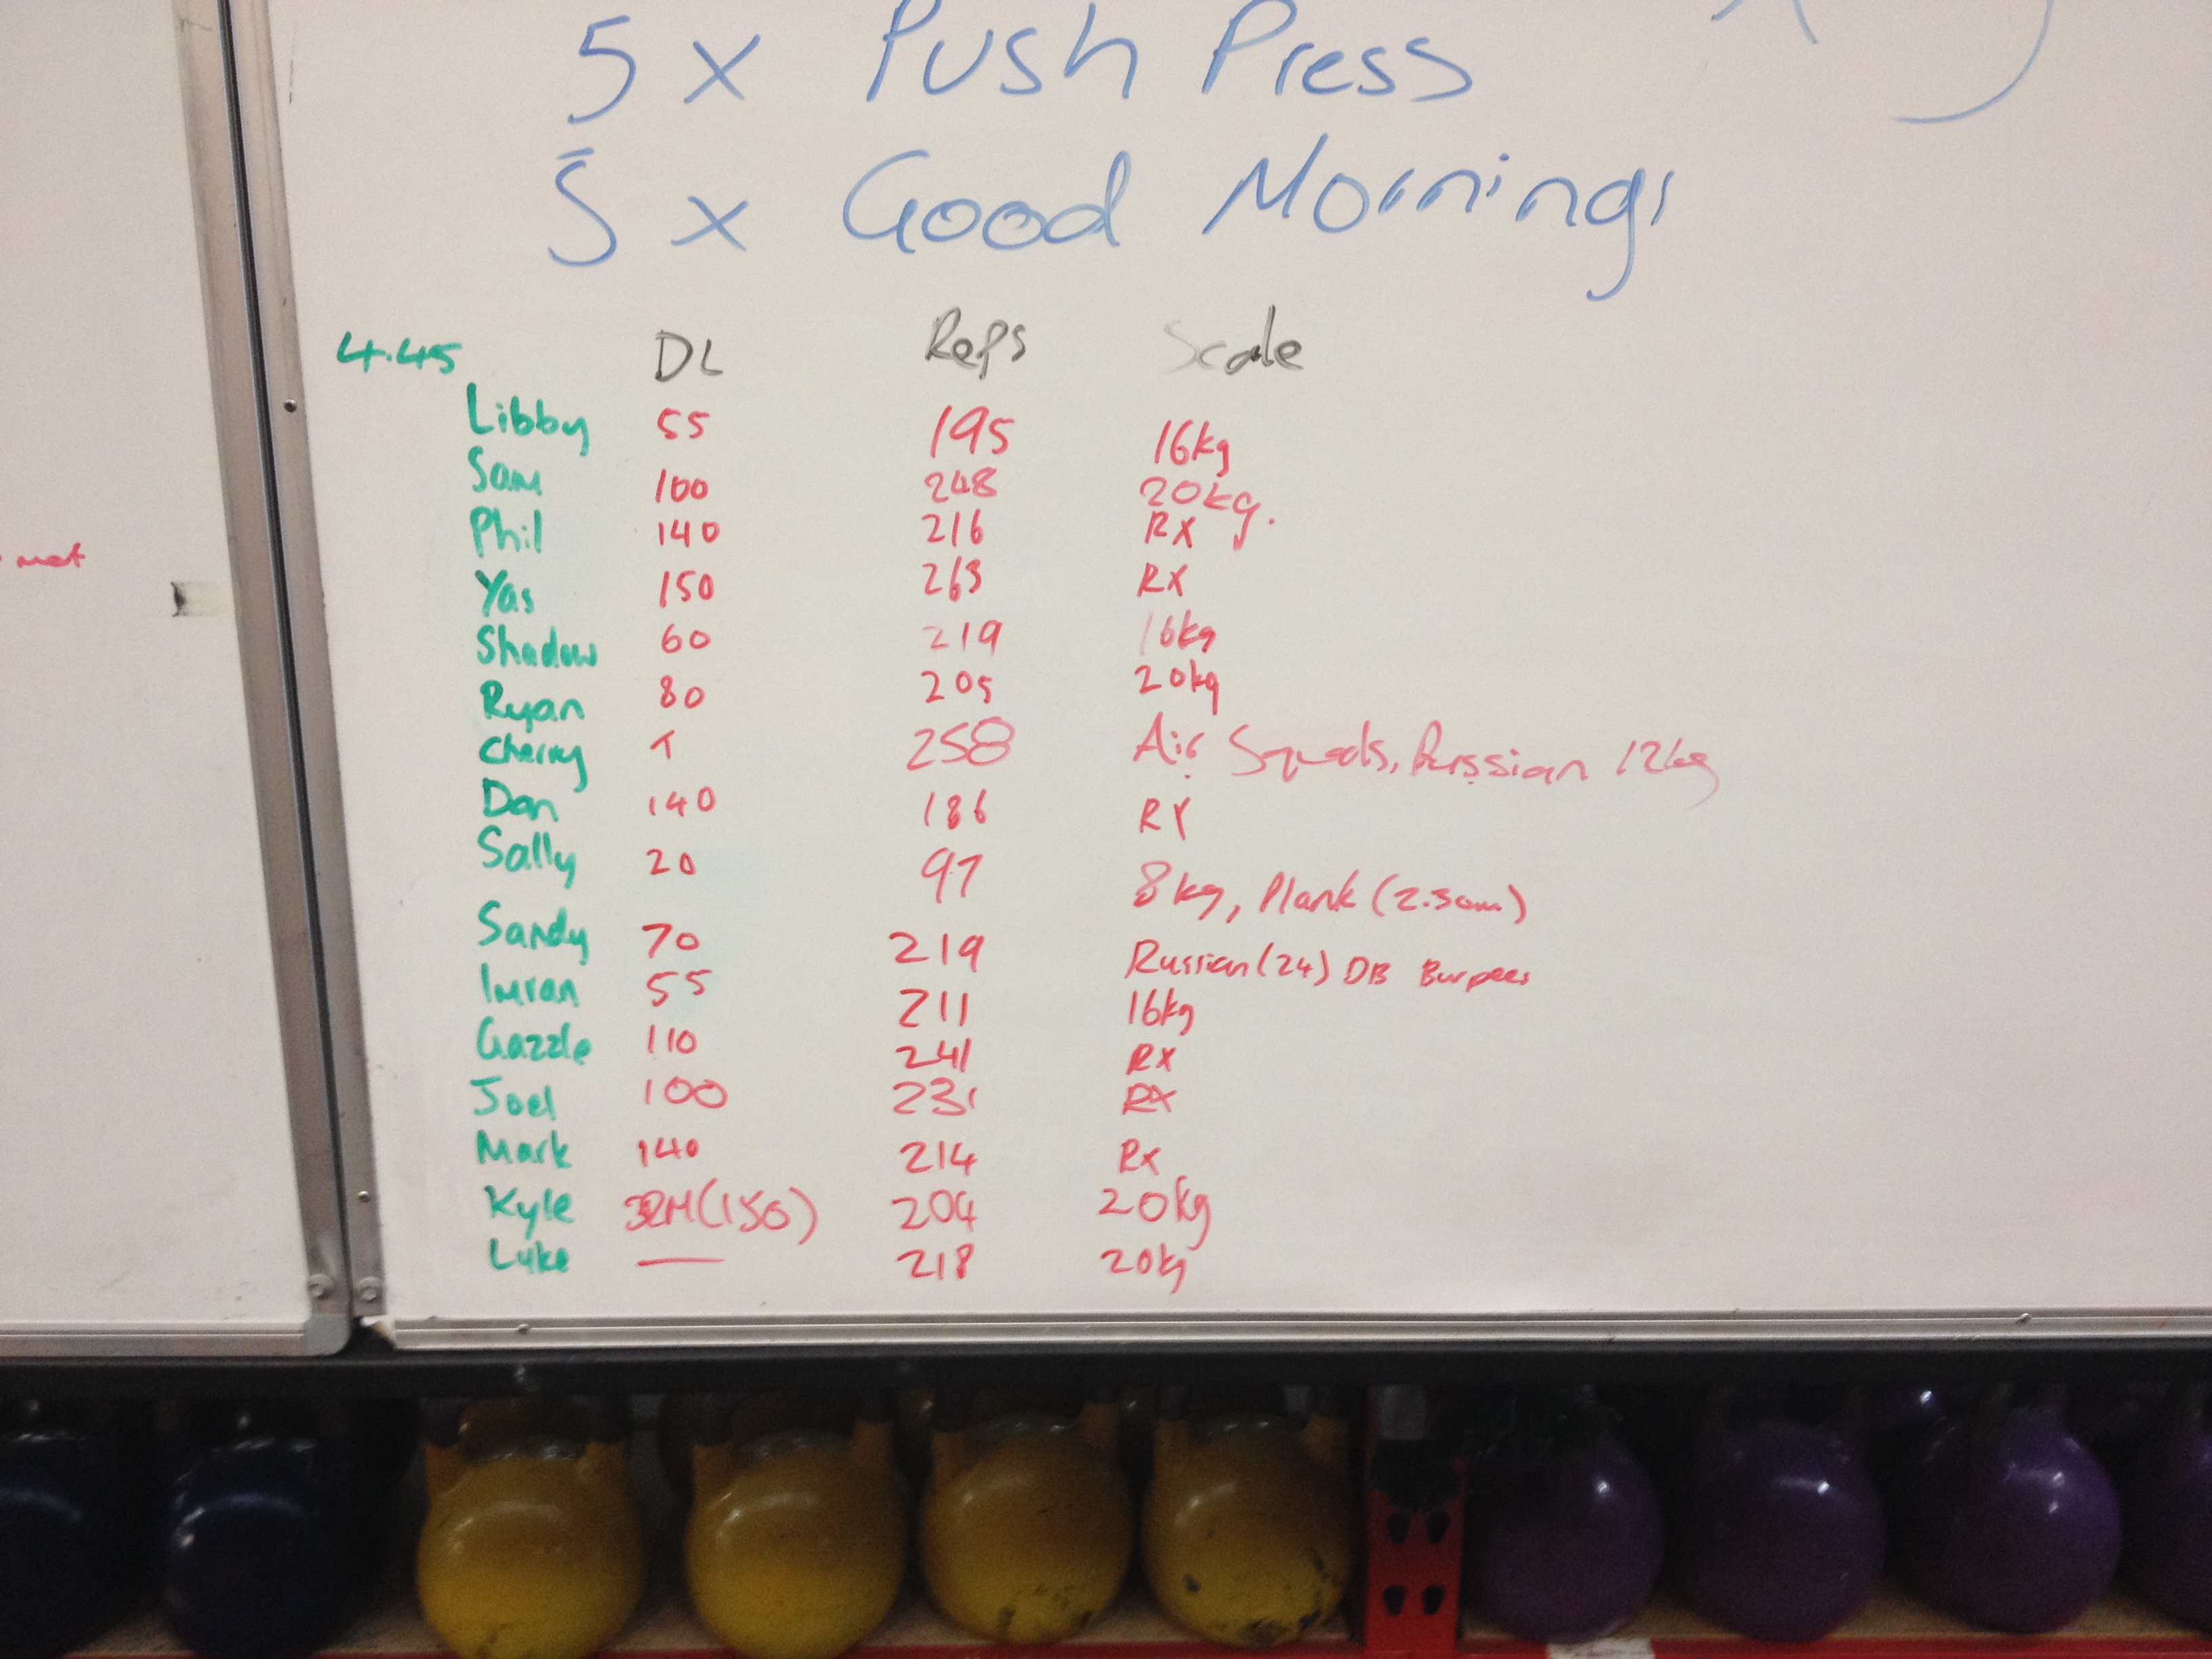 5 x Push Press
5 x Good Mornings
met
4.45 DL Reps Scale
Libby 55 195 16kg
Sam 100 248 20kg.
Phil 140 216 RX
Yas 150 263 RX
Shadow 60 219 16kg
Ryan 80 205 20kg
Cherry T 258 Air Squats, Russian 12kg
Dan 140 186 RX
Sally 20 97 8kg, Plank (2.5cm)
Sandy 70 219 Russian (24) DB Burpees
Imran 55 211 16kg
Gazzle 110 241 RX
Joel 100 231 RX
Mark 140 214 Rx
Kyle 3RM (150) 204 20kg
Luke — 218 20kg